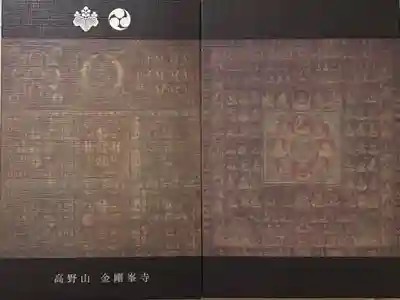 高野山 金剛峯寺